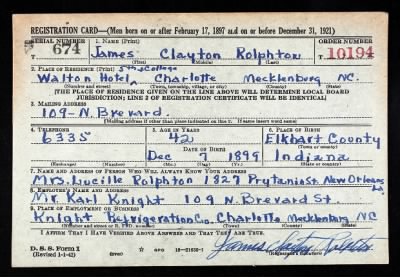 REGISTRATION CARD—(Men born on or after February 17, 1897 and on or before December 31, 1921)
SERIAL NUMBER 1. NAME (Print) ORDER NUMBER
T 674 James Clayton Rolphton 10194
(First) (Middle) (Last)
2. PLACE OF RESIDENCE (Print) 5th & College
Walton Hotel, Charlotte Mecklenburg NC.
(Number and street) (Town, township, village, or city) (County) (State)
[THE PLACE OF RESIDENCE GIVEN ON THE LINE ABOVE WILL DETERMINE LOCAL BOARD
JURISDICTION; LINE 2 OF REGISTRATION CERTIFICATE WILL BE IDENTICAL]
3. MAILING ADDRESS
109-N-Brevard.
(Mailing address if other than place indicated on line 2. If same insert word same)
4. TELEPHONE 5. AGE IN YEARS 6. PLACE OF BIRTH
6335 42 Elkhart County
DATE OF BIRTH (Town or county)
Dec 7 1899 Indiana
(Exchange) (Number) (Mo.) (Day) (Yr.) (State or country)
7. NAME AND ADDRESS OF PERSON WHO WILL ALWAYS KNOW YOUR ADDRESS
Mrs. Lucille Rolphton 1827 Prytania St New Orleans La
8. EMPLOYER'S NAME AND ADDRESS
Mr Karl Knight 109 N. Brevard St.
9. PLACE OF EMPLOYMENT OR BUSINESS
Knight Refrigeration Co. Charlotte Mecklenburg NC
(Number and street or R. F. D. number) (Town) (County) (State)
I AFFIRM THAT I HAVE VERIFIED ABOVE ANSWERS AND THAT THEY ARE TRUE.
D. S. S. Form 1
(Revised 1-1-42) (over) 16—21630-1
James Clayton Rolphton
(Registrant's signature)